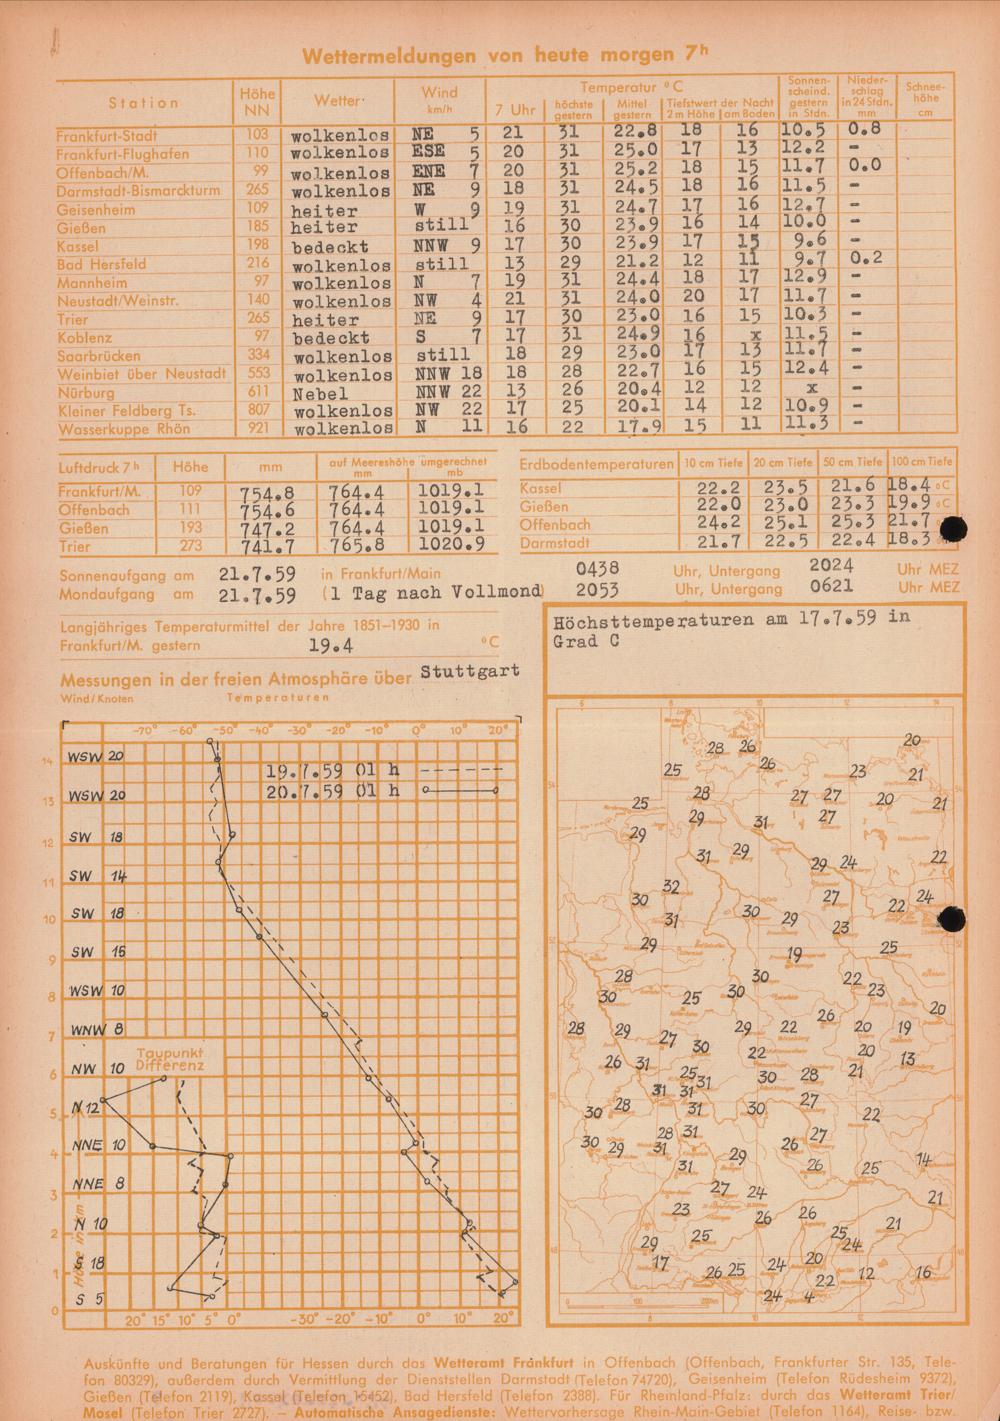 Wettermeldungen von heute morgen 7ʰ
Station Höhe NN Wetter Wind km/h Temperatur °C Sonnenscheind. gestern in Stdn. Niederschlag in 24 Stdn. mm Schneehöhe cm
7 Uhr höchste gestern Mittel gestern Tiefstwert der Nacht 2 m Höhe am Boden
Frankfurt-Stadt 103 wolkenlos NE 5 21 31 22.8 18 16 10.5 0.8
Frankfurt-Flughafen 110 wolkenlos ESE 5 20 31 25.0 17 13 12.2 -
Offenbach/M. 99 wolkenlos ENE 7 20 31 25.2 18 15 11.7 0.0
Darmstadt-Bismarckturm 265 wolkenlos NE 9 18 31 24.5 18 16 11.5 -
Geisenheim 109 heiter W 9 19 31 24.7 17 16 12.7 -
Gießen 185 heiter still 16 30 23.9 16 14 10.0 -
Kassel 198 bedeckt NNW 9 17 30 23.9 17 15 9.6 -
Bad Hersfeld 216 wolkenlos still 13 29 21.2 12 11 9.7 0.2
Mannheim 97 wolkenlos N 7 19 31 24.4 18 17 12.9 -
Neustadt/Weinstr. 140 wolkenlos NW 4 21 31 24.0 20 17 11.7 -
Trier 265 heiter NE 9 17 30 23.0 16 15 10.3 -
Koblenz 97 bedeckt S 7 17 31 24.9 16 x 11.5 -
Saarbrücken 334 wolkenlos still 18 29 23.0 17 13 11.7 -
Weinbiet über Neustadt 553 wolkenlos NNW 18 18 28 22.7 16 15 12.4 -
Nürburg 611 Nebel NNW 22 13 26 20.4 12 12 x -
Kleiner Feldberg Ts. 807 wolkenlos NW 22 17 25 20.1 14 12 10.9 -
Wasserkuppe Rhön 921 wolkenlos N 11 16 22 17.9 15 11 11.3 -
Luftdruck 7ʰ Höhe mm auf Meereshöhe umgerechnet mm mb
Frankfurt/M. 109 754.8 764.4 1019.1
Offenbach 111 754.6 764.4 1019.1
Gießen 193 747.2 764.4 1019.1
Trier 273 741.7 765.8 1020.9
Erdbodentemperaturen 10 cm Tiefe 20 cm Tiefe 50 cm Tiefe 100 cm Tiefe
Kassel 22.2 23.5 21.6 18.4 °C
Gießen 22.0 23.0 23.3 19.9 °C
Offenbach 24.2 25.1 25.3 21.7
Darmstadt 21.7 22.5 22.4 18.3
Sonnenaufgang am 21.7.59 in Frankfurt/Main 0438 Uhr, Untergang 2024 Uhr MEZ
Mondaufgang am 21.7.59 (1 Tag nach Vollmond) 2053 Uhr, Untergang 0621 Uhr MEZ
Langjähriges Temperaturmittel der Jahre 1851–1930 in
Frankfurt/M. gestern 19.4 °C
Messungen in der freien Atmosphäre über Stuttgart
Wind/Knoten Temperaturen
-70° -60° -50° -40° -30° -20° -10° 0° 10° 20°
19.7.59 01 h
20.7.59 01 h
WSW 20
14
WSW 20
13
SW 18
12
SW 14
11
SW 18
10
SW 15
9
WSW 10
8
WNW 8
7
Taupunkt
Differenz
NW 10
6
N 12
5
NNE 10
4
NNE 8
3
N 10
2
S 18
1
S 5
0
Höhe in km
20° 15° 10° 5° 0° -30° -20° -10° 0° 10° 20°
Höchsttemperaturen am 17.7.59 in
Grad C
28 26 20
25 26 23 21
25 28 27 27 20 21
29 29 31 27
31 29 29 24 22
30 32 27 22 24
31 30 29 23
29 19 25
28 30 22 23
30 25 30 26 20
28 29 27 30 29 22 20 19
26 31 22 20 13
25 31 30 28 21
31 31
30 28 31 30 27 22
30 29 28 31 31 29 26 27
31 26 25 14
27 24 21
23 26 26 21
29 25 25 24
17 26 25 24 20 22 12 16
24 4
Auskünfte und Beratungen für Hessen durch das Wetteramt Frankfurt in Offenbach (Offenbach, Frankfurter Str. 135, Tele-
fon 80329), außerdem durch Vermittlung der Dienststellen Darmstadt (Telefon 74720), Geisenheim (Telefon Rüdesheim 9372),
Gießen (Telefon 2119), Kassel (Telefon 15452), Bad Hersfeld (Telefon 2388). Für Rheinland-Pfalz: durch das Wetteramt Trier/
Mosel (Telefon Trier 2727). – Automatische Ansagedienste: Wettervorhersage Rhein-Main-Gebiet (Telefon 1164), Reise- bzw.